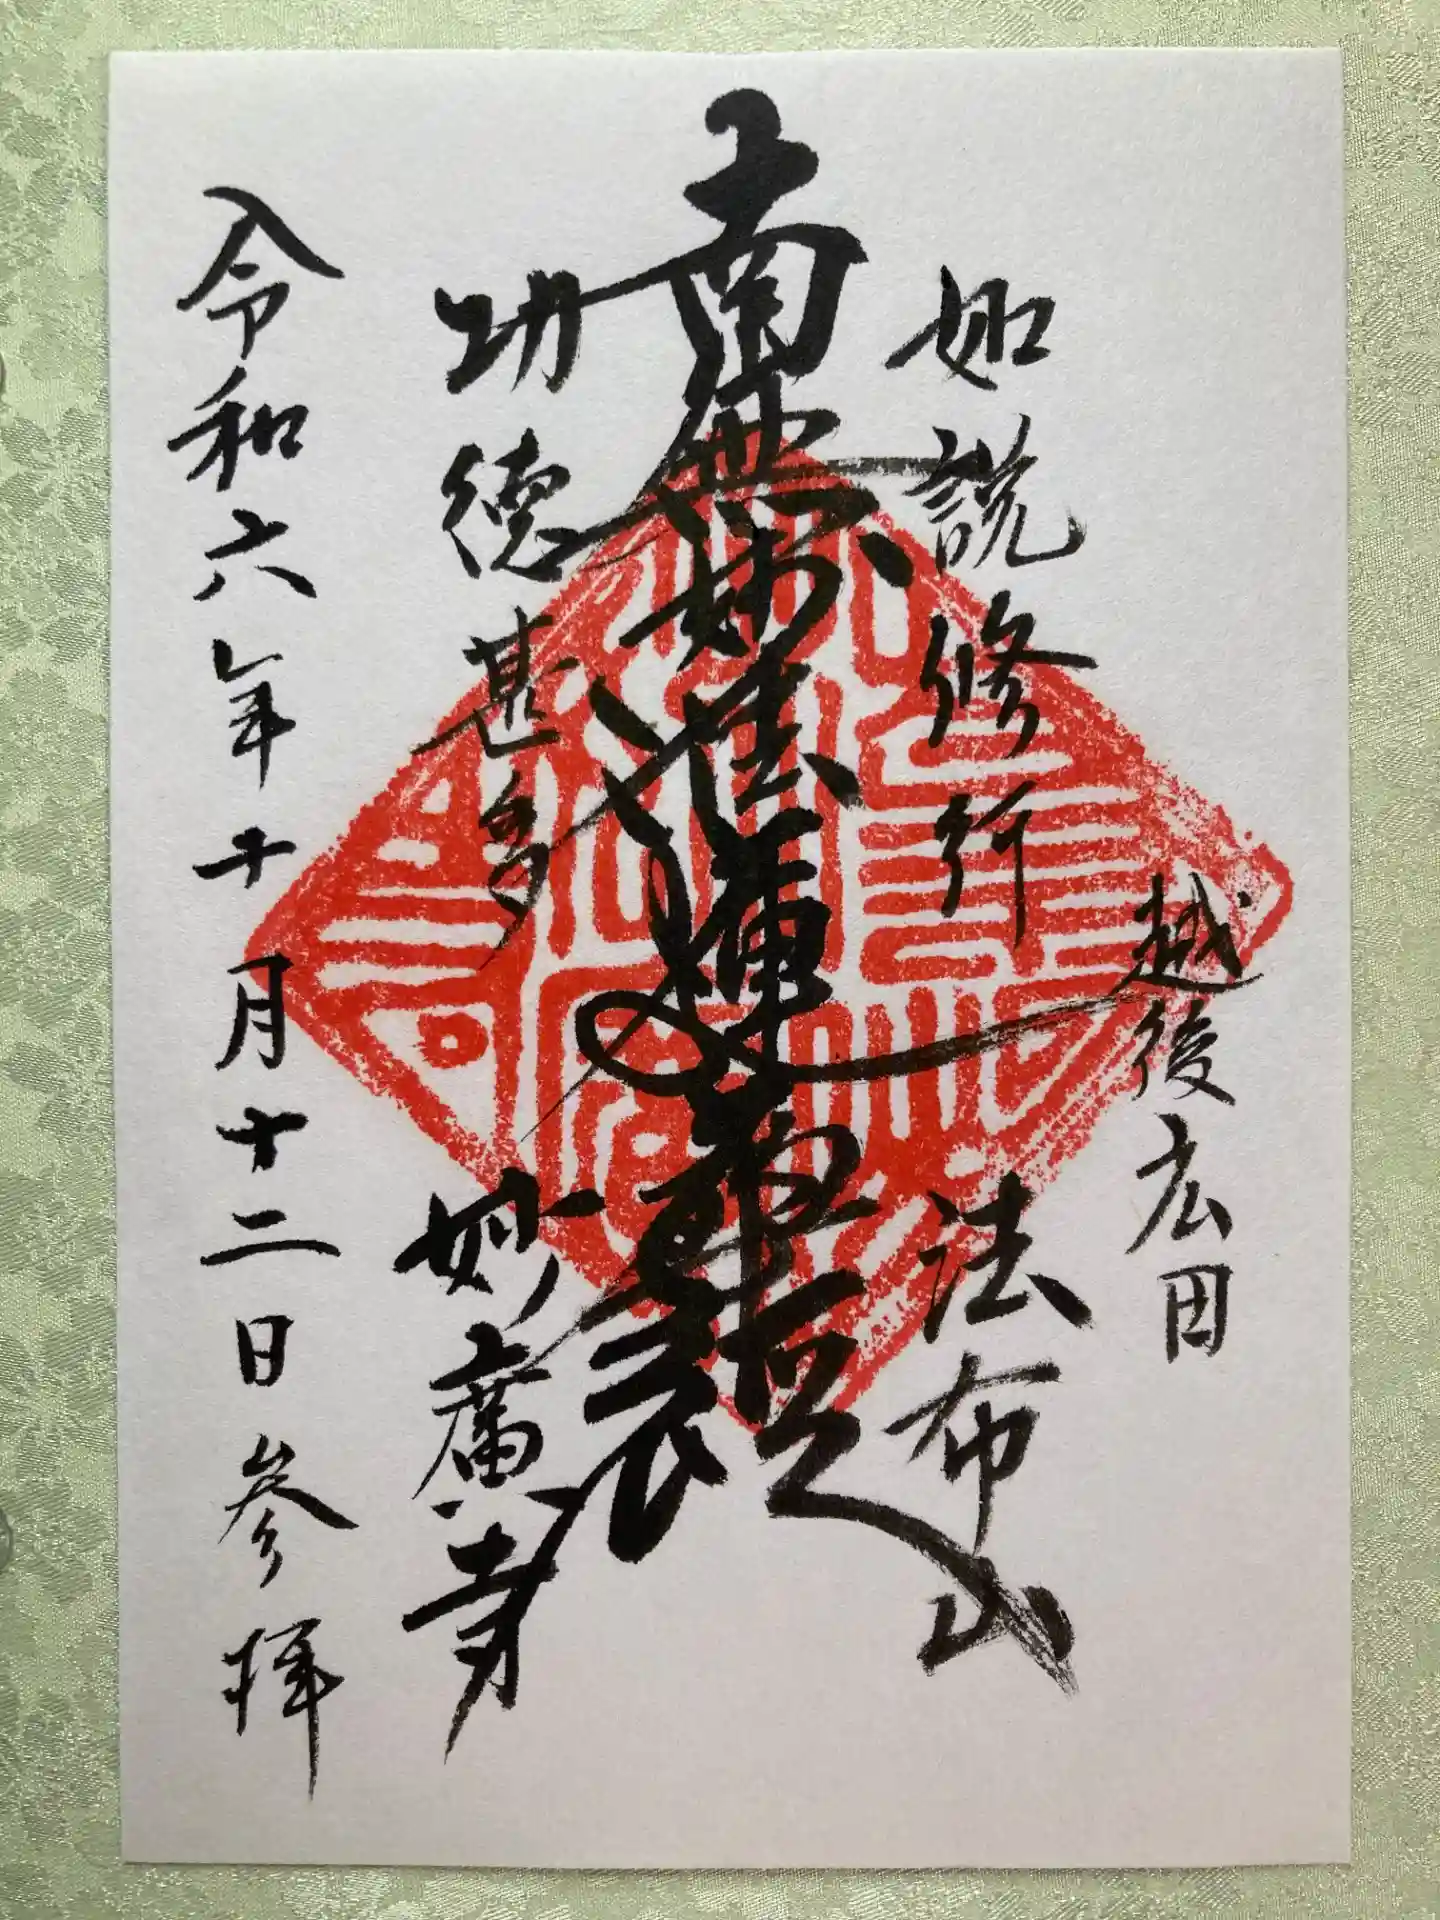 越後広田
如説修行
法布山
南無妙法蓮華経
功徳甚多
妙廣寺
令和六年十月十二日参拝